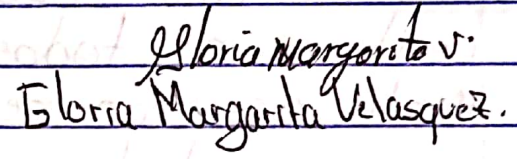 Gloria Margarita V.
Gloria Margarita Velasquez.